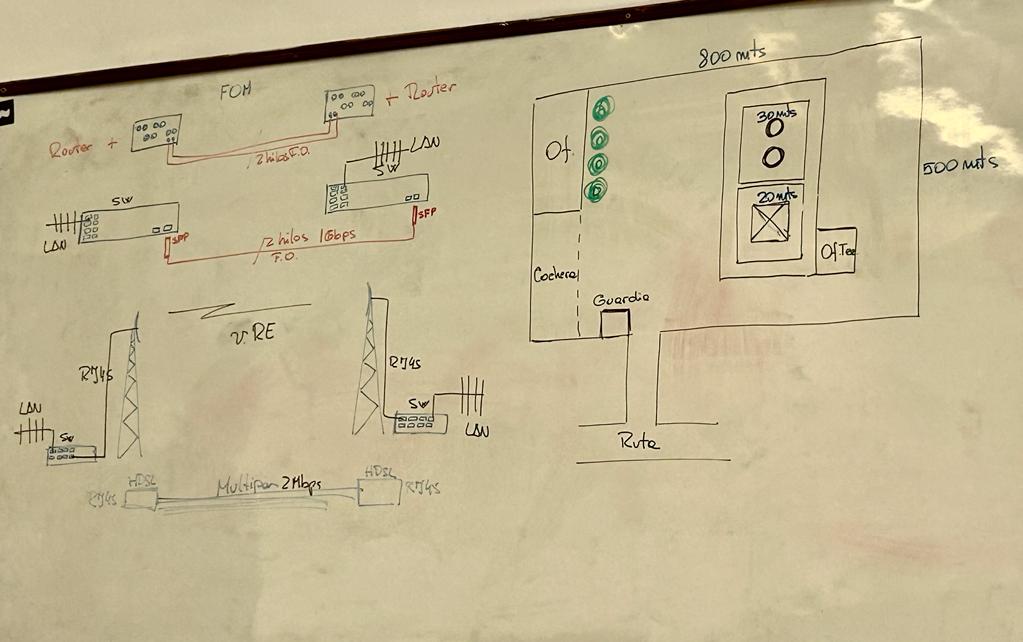 FOM
Router +
+ Router
2 hilos F.O.
SW
LAN
SFP
SW
LAN
SFP
2 hilos 1Gbps
F.O.
RJ45
LAN
SW
RJ45
SW
LAN
RJ45
HDSL
Multipar 2Mbps
HDSL
RJ45
800 mts
500 mts
Of.
Cochera
Guardia
30 mts
20 mts
Of. Tec
Ruta